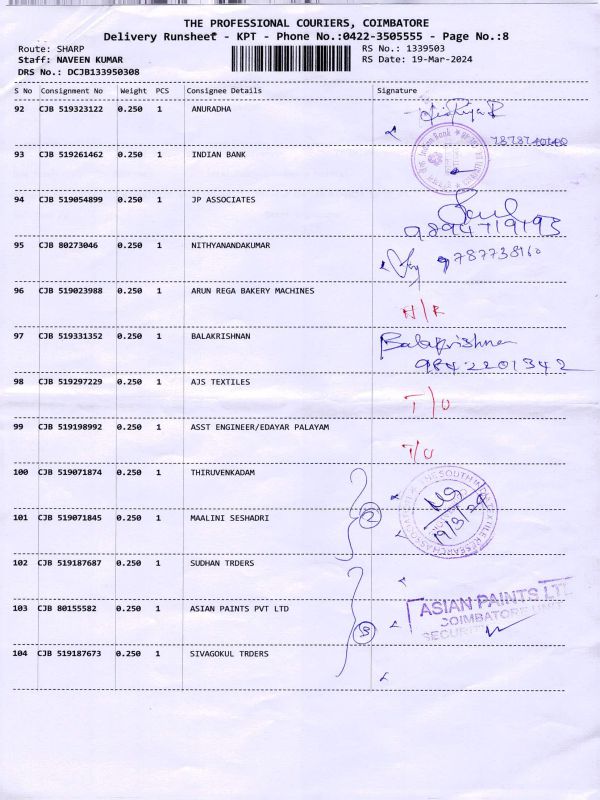 THE PROFESSIONAL COURIERS, COIMBATORE
Delivery Runsheet - KPT - Phone No.:0422-3505555 - Page No.:8
Route: SHARP RS No.: 1339503
Staff: NAVEEN KUMAR RS Date: 19-Mar-2024
DRS No.: DCJB133950308
S No Consignment No Weight PCS Consignee Details Signature
92 CJB 519323122 0.250 1 ANURADHA
93 CJB 519261462 0.250 1 INDIAN BANK
Indian Bank
94 CJB 519054899 0.250 1 JP ASSOCIATES
9894719193
95 CJB 80273046 0.250 1 NITHYANANDAKUMAR 9787738160
96 CJB 519023988 0.250 1 ARUN REGA BAKERY MACHINES
N/R
97 CJB 519331352 0.250 1 BALAKRISHNAN Balakrishnan
9842201342
98 CJB 519297229 0.250 1 AJS TEXTILES
T/O
99 CJB 519198992 0.250 1 ASST ENGINEER/EDAYAR PALAYAM
T/O
100 CJB 519071874 0.250 1 THIRUVENKADAM
101 CJB 519071845 0.250 1 MAALINI SESHADRI 2 19/3/24
102 CJB 519187687 0.250 1 SUDHAN TRDERS
103 CJB 80155582 0.250 1 ASIAN PAINTS PVT LTD ASIAN PAINTS LTD
COIMBATORE UNIT
3 SECURITY
104 CJB 519187673 0.250 1 SIVAGOKUL TRDERS